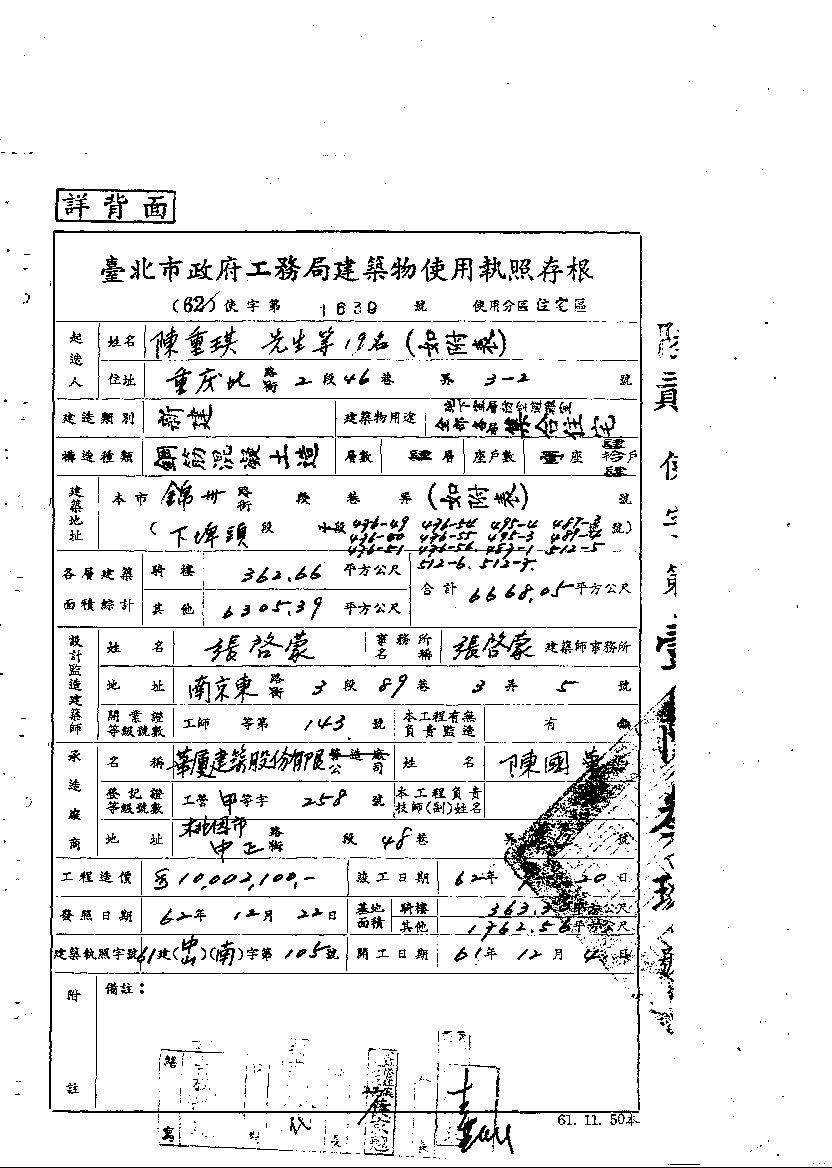 詳背面
臺北市政府工務局建築物使用執照存根
(62)使字第 1639 號 使用分區住宅區
起造人 姓名 陳重琪 先生等19名(如附表)
住址 重慶北路街 2段46巷 弄 3-2 號
建造類別 新建 建築物用途 全部各層集合住宅
構造種類 鋼筋混凝土造 層數 肆層 座戶數 壹座 肆拾肆戶
建築地址 本市 錦州路街 段 巷 弄 (如附表) 號
(下埤頭段 476-49 476-54 495-4 487-3 號)
476-50 476-55 495-3 487-4
476-51 476-56 487-1 512-5
512-6. 512-7.
各層建築面積綜計 騎樓 362.66 平方公尺
其他 6305.39 平方公尺 合計 6668.05平方公尺
設計監造建築師 姓名 張啓蒙 事務所名稱 張啓蒙 建築師事務所
地址 南京東路街 3段89巷 3弄 5號
開業證等級號數 工師 等第 143 號 本工程有無負責監造 有 無
承造廠商 名稱 華厦建築股份有限營造廠公司 姓名 陳國
登記證等級號數 工營甲等字 258 號 本工程負責技師(副)姓名
地址 桃園市中正路街 段 48巷 弄 號
工程造價 10,002,100,- 竣工日期 62年 20日
發照日期 62年 12月 22日 基地面積 騎樓 363.3 平方公尺
其他 1762.56 平方公尺
建築執照字號 61建(中山)(南)字第 105號 開工日期 61年 12月 4日
附註 備註:
61. 11. 50本